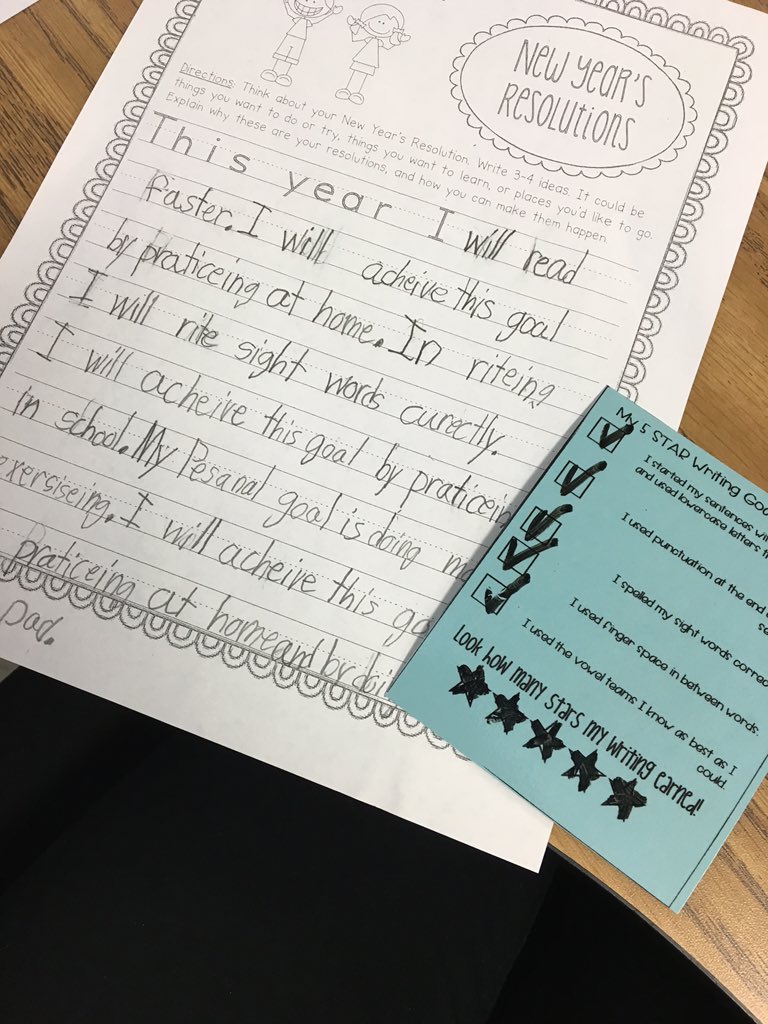 NEW YEAR'S
RESOLUTIONS
Directions: Think about your New Year's Resolution. Write 3-4 ideas. It could be
things you want to do or try, things you want to learn, or places you'd like to go.
Explain why these are your resolutions, and how you can make them happen.
This year I will read
faster. I will acheive this goal
by praticeing at home. In riteing
I will rite sight words curectly.
I will acheive this goal by praticeing
in school. My Pesanal goal is doing
exersiseing. I will acheive this
praticeing at home and by
Dad.
My 5 STAR Writing
I started my sentences
and used lowercase letters
I used punctuation at the end
I spelled my sight words
I used finger space in between words.
I used the vowel teams I know as best as I
could.
Look how many stars my writing earned!